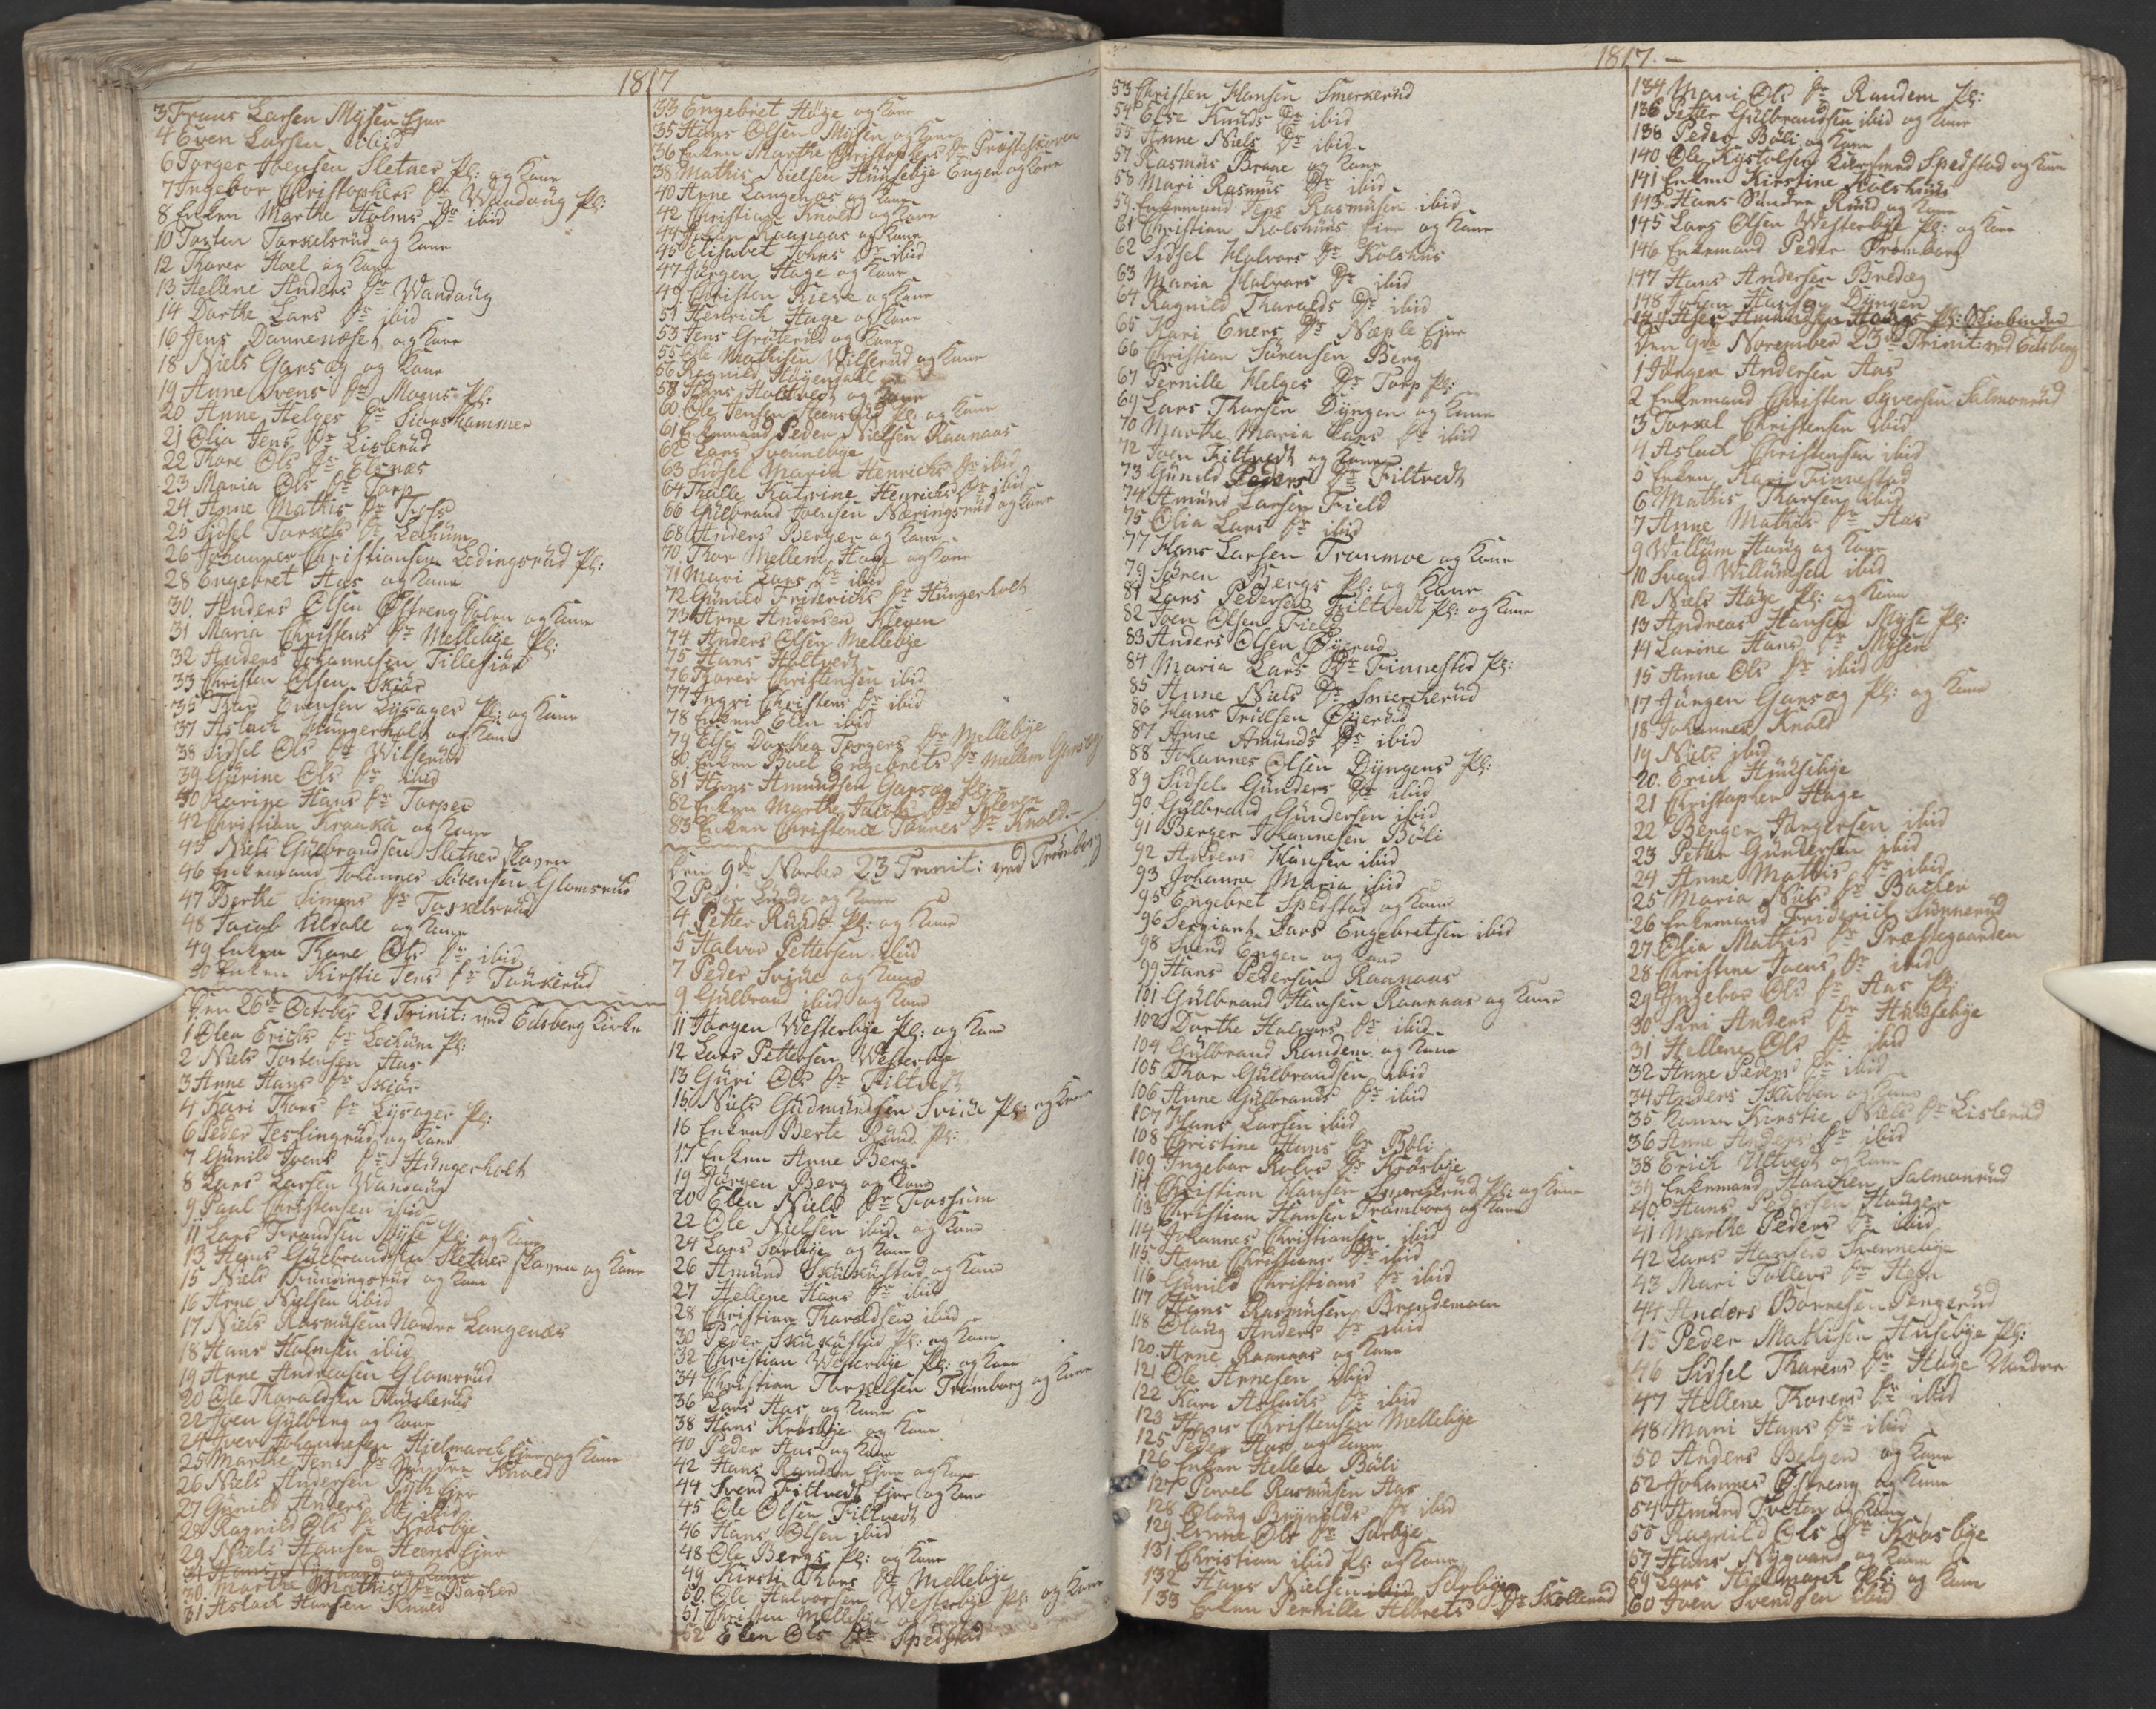 1817
3 Frans Larsen Mysen Ejer
4 Even Larsen ibid
6 Torger Joensen Sletner Pl: og Kone
7 Ingebor Christophers Dr Wandaug Pl:
8 Enken Marthe Holms Dr ibid
10 Tosten Torkelsrüd og Kone
12 Thorer Hoel og Kone
13 Hellene Anders Dr Wandaug
14 Dorthe Lars Dr ibid
16 Jens Dannenæset og Kone
18 Niels Garsæg og Kone
19 Anne Svens Dr Moens Pl:
20 Anne Helges Dr Sionshammer
21 Olia Jens Dr Lislerüd
22 Thore Ols Dr Elsnæs
23 Maria Ols Dr Torp
24 Anne Mathis Dr
25 Sidsel Torkels Dr Lechüm
26 Johannes Christiansen Ledingsrüd Pl:
28 Engebret Aas og Kone
30. Anders Olsen Østreng Solen og Kone
31 Maria Christens Dr Mellebye Pl:
32 Anders Johannesen Tillesiør
33 Christen Olsen Skiør
35 Thor Evensen Lysager Pl: og Kone
37 Aslach Hüngerholt og Kone
38 Sidsel Ols Dr Wilserüd
39 Gurine Ols Dr ibid
40 Karine Hans Dr Torper
42 Christian Kraaka og Kone
43 Niels Gülbrandsen Sletner skoven
46 Enkemand Johannes Sørensen Glomsrüd
47 Berthe Simens Dr Torkelsrüd
48 Jacob Uldahl og Kone
49 Enken Thore Ols Dr ibid
50 Enken Kirstie Jens Dr Tønserüd
Den 26de October 21 Trinit: ved Edsberg Kirke
1 Olea Erichs Dr Lechüm Pl:
2 Niels Tostensen Aas
3 Anne Hans Dr Skiør
4 Kari Thors Dr Lysager Pl:
6 Peder Teslingrüd og Kone
7 Günild Joens Dr Hüngerholt
8 Lars Larsen Wandaug
9 Paul Christensen ibid
11 Lars Frandsen Myse Pl: og Kone
13 Hans Gülbrandsen Sletner skoven og Kone
15 Niels Fründingsrüd og Kone
16 Arne Nielsen ibid
17 Niels Rasmüsen Nordre Langenæs
18 Hans Holmsen ibid
19 Arne Andreasen Glomsrüd
20 Ole Tharaldsen Thüskerüd
22 Joen Gülberg og Kone
24 Iver Johannesen Hielmarck Ejer og Kone
25 Marthe Jens Dr Søndre Knold
26 Niels Andersen Ejer
27 Günild Anders Dr ibid
28 Ragnild Ols Dr Krosbye
29 Niels Hansen Heens Ejer
31 Hans Nygaard og Kone
30. Marthe Mathis Dr Bacher
31 Aslach Hansen Knold
33 Engebret Høye og Kone
35 Hans Olsen Mysen og Kone
36 Enken Marthe Christophers Dr Præsteskoven
38 Mathis Nielsen Hüüsebye Engen og Kone
40 Arne Langenæs og Kone
42 Christian Knold og Kone
44 Raanaas og Kone
45 Elisabet Johns Dr ibid
47 Jørgen Hage og Kone
49 Christen Kieve og Kone
51 Henrich Hage og Kone
53 Jens Grøterüd og Kone
55 Ole Mathisen Wilserüd og Kone
56 Ragnild Høyendahl
58 Hans Holtvedt og Kone
60 Ole Jensen Steensrüd Pl: og Kone
61 Enkemand Peder Nielsen Raanaas
62 Lars Svennebye
63 Sidsel Maria Henrichs Dr ibid
64 Thalle Katrine Henrichs Dr ibid
66 Gülbrand Joensen Næringsrüd og Kone
68 Anders Berger og Kone
70. Thor Mellem Hage og Kone
71 Mari Lars Dr ibid
72 Günild Friderichs Dr Hüngerholt
73 Arne Andersen Kleven
74 Anders Olsen Mellebye
75 Hans Holtvedt
76 Thorer Christensen ibid
77 Ingri Christens Dr ibid
78 Enken Elen ibid
79 Else Dorthea Torgers Dr Mellebye
80 Enken Boel Engebrets Dr Mellem Garsæg
81 Hans Amündsen Garsæg Pl:
82 Enken Marthe Jacobs Dr Kleven
83 Enken Christence Tønnes Dr Knold.
Den 9de Novbr 23 Trinit: ved Trømborg
2 Peder Lunde og Kone
4 Petter Runds Pl: og Kone
5 Halvor Pettersen ibid
7 Peder Sviüe og Kone
9 Gülbrand ibid og Kone
11 Jørgen Westerbye Pl: og Kone
12 Lars Pettersen Westerbye
13 Güri Ols Dr Filtvedt
15. Niels Gudmündsen Sviüe Pl: og Kone
16 Enken Berte Rund Pl:
17 Enken Anne Berg
19 Jørgen Berg og Kone
20 Elen Niels Dr Fossüm
22 Ole Nielsen ibid og Kone
24 Lars Sørbye og Kone
26 Amünd Sküküstad og Kone
27 Hellene Hans Dr ibid
28 Christian Tharaldsen ibid
30 Peder Sküküstad Pl: og Kone
32 Christian Westerbye Pl: og Kone
34 Christian Torkelsen Trømborg og Kone
36 Lars Aas og Kone
38 Hans Krosbye og Kone
40 Peder Aas og Kone
42 Hans Randem Ejer og Kone
44 Svend Filtvedt Ejer og Kone
45 Ole Olsen Filtvedt
46 Hans Olsen ibid
48 Ole Bergs Pl: og Kone
49 Kirsti Thors Dr Mellebye
50. Ole Halvorsen Westerbye Pl: og Kone
51 Christen Mellebye og Kone
52 Elen Ols Dr Spedstad
1817.
53 Christen Hansen Smerkerüd
54 Else Knüds Dr ibid
55 Anne Niels Dr ibid
57 Rasmüs Braae og Kone
58 Mari Rasmüs Dr ibid
59. Enkemand Jens Rasmüsen ibid
61 Christian Kolshüüs Ejer og Kone
62 Sidsel Halvors Dr Kolshüs
63 Maria Halvors Dr ibid
64 Ragnild Tharalds Dr ibid
65 Kari Eners Dr Næple Ejer
66 Christian Sørensen Berg
67 Pernille Helges Dr Torp Pl:
69 Lars Thorsen Dyngen og Kone
70 Marthe Maria Lars Dr ibid
72 Joen Filtvedt og Kone
73 Günild Peders Dr Filtvedt
74 Amünd Larsen Field
75 Olia Lars Dr ibid
77 Hans Larsen Tronmoe og Kone
79 Søren Bergs Pl: og Kone
81 Lars Pedersen Filtvedt Pl: og Kone
82 Joen Olsen Field
83 Anders Olsen Øyerüd
84 Maria Lars Dr Finnestad Pl:
85 Anne Niels Dr Smercherüd
86 Hans Trülsen Øyerüd
87 Anne Amünds Dr ibid
88 Johannes Olsen Dyngens Pl:
89 Sidsel Günders Dr ibid
90. Gülbrand Gündersen ibid
91 Berger Johannesen Bøli
92 Anders Hansen ibid
93 Johanne Maria ibid
95 Engebret Spedstad og Kone
96 Sergiant Lars Engebretsen ibid
98 Svend Engen og Kone
99 Hans Pedersen Raanaas
101 Gülbrand Hansen Raanaas og Kone
102 Dorthe Halvors Dr ibid
104 Gülbrand Randem og Kone
105 Thor Gülbrandsen ibid
106 Anne Gülbrands Dr ibid
107 Hans Larsen ibid
108 Christine Hans Dr Bøli
109 Ingebor Rolvs Dr Krosbye
111 Christian Hansen Smercherüd Pl: og Kone
113 Christian Hansen Trømborg og Kone
114 Johannes Christiansen ibid
115. Anne Christians Dr ibid
116 Günild Christians Dr ibid
117 Hans Rasmüsen Brendemoen
118 Olaug Anders Dr ibid
120. Arne Raanaas og Kone
121 Ole Arnesen ibid
122 Kari Aslachs Dr ibid
123 Hans Christensen Mellebye
125 Peder Aas og Kone
126 Enken Hellene Bøli
127 Povel Rasmüsen Aas
128 Olaug Brynylds Dr ibid
129 Anne Ols Dr Sørbye
131 Christian ibid Pl: og Kone
132 Hans Nielsen ibid Sørbye
133 Enken Pernille Albrets Dr Skollerüd
134 Mari Ols Dr Randem Pl:
136 Petter Gülbrandsen ibid og Kone
138 Peder Bøli og Kone
140 Ole Kystolsen Spedstad og Kone
141 Enken Kirstine Kolshüüs
143 Hans Søndre Rund og Kone
145 Lars Olsen Westerbye Pl: og Kone
146 Enkemand Peder Trømborg
147 Hans Andersen Bredeg
148 Johan Hansen Dyngen
149 Amündsen Haugs Pl:
Den 9de November 23de Trinit: ved Edsberg
1 Jørgen Andersen Aas
2 Enkemand Christen Syversen Salmonrüd
3 Torkel Christensen ibid
4 Aslach Christensen ibid
5 Enken Kari Finnestad
6 Mathis Thorsen ibid
7 Anne Mathis Dr Aas
9 Willüm Haug og Kone
10 Svend Willümsen ibid
12 Niels Høye Pl: og Kone
13 Andreas Hansen Myse Pl:
14 Larine Hans Dr Mysen
15 Anne Ols Dr ibid
17 Jørgen Garsæg Pl: og Kone
18 Johannes Knold
19 Niels ibid
20. Erich Hüüsebye
21 Christopher Hage
22 Berger Jørgensen ibid
23 Petter Gündersen ibid
24 Anne Mathis Dr ibid
25 Maria Niels Dr Bacher
26 Enkemand Friderich Sünnerüd
27 Olia Mathis Dr Præstegaarden
28 Christine Joens Dr ibid
29 Ingebor Ols Dr Aas Pl:
30 Siri Anders Dr Hüüsebye
31 Hellene Ols Dr ibid
32 Anne Peders Dr ibid
34 Anders Skabben og Kone
35 Konen Kirstie Niels Dr Lislerüd
36 Anne Anders Dr ibid
38 Erich Ultvedt og Kone
39 Enkemand Haachen Salmonrüd
40 Hans Pedersen Haugen
41 Marthe Peders Dr ibid
42 Lars Hansen Svennebye
43 Mari Tollevs Dr Heen
44 Anders Børresen Pengerüd
45 Peder Mathisen Husebye Pl:
46 Sidsel Thorers Dr Hage Nordre
47 Hellene Thorers Dr ibid
48 Mari Hans Dr ibid
50 Anders Belgen og Kone
52 Johannes Østreng og Kone
54 Amünd Tveten og Kone
55 Ragnild Ols Dr Krosbye
57 Hans Nygaard og Kone
59 Lars Hielmarch Pl: og Kone
60 Iven Svendsen ibid